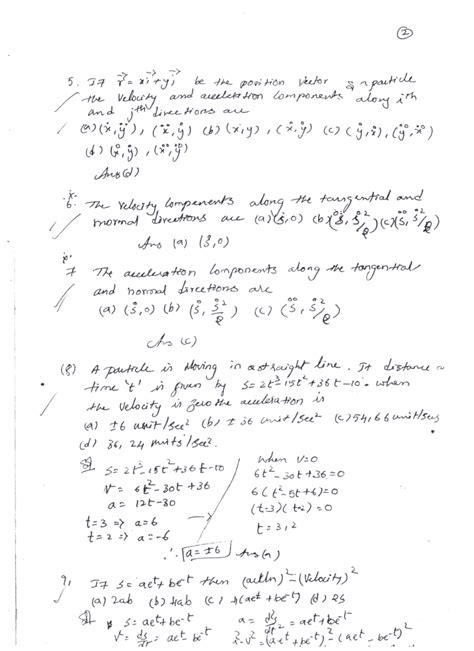 ②
5. If r⃗ = xi⃗ + yj⃗ be the position vector of a particle
the velocity and acceleration components along ith
and jth directions are
(a) (ẋ, ẏ), (ẍ, ẏ) (b) (x, y), (ẋ, ẏ) (c) (ẏ, ẋ), (ÿ, ẍ)
(d) (ẋ, ẏ), (ẍ, ÿ)
Ans (d)
6. The velocity components along the tangential and
normal directions are (a) (ṡ, 0) (b) (s̈, ṡ²/ρ) (c) (s̈, ṡ²/ρ)
Ans (a) (ṡ, 0)
7 The acceleration components along the tangential
and normal directions are
(a) (ṡ, 0) (b) (ṡ, ṡ²/ρ) (c) (s̈, ṡ²/ρ)
Ans (c)
(8) A particle is moving in a straight line. It distance
time 't' is given by s = 2t³ - 15t² + 36t - 10. when
the velocity is zero the acceleration is
(a) ±6 unit/sec² (b) ±36 unit/sec² (c) 54, 66 unit/sec
(d) 36, 24 units/sec².
s = 2t³ - 15t² + 36t - 10
v = 6t² - 30t + 36
a = 12t - 30
t = 3 => a = 6
t = 2 => a = -6
when v = 0
6t² - 30t + 36 = 0
6(t² - 5t + 6) = 0
(t-3)(t-2) = 0
t = 3, 2
∴ a = ±6 Ans (a)
9, If s = aet + be-t then (accln)² - (velocity)²
(a) 2ab (b) 4ab (c) 4(aet + be-t) (d) 2s
s = aet + be-t a = d²s/dt² = aet + be-t
v = ds/dt = aet - be-t a² - v² = (aet + be-t)² - (aet - be-t)²